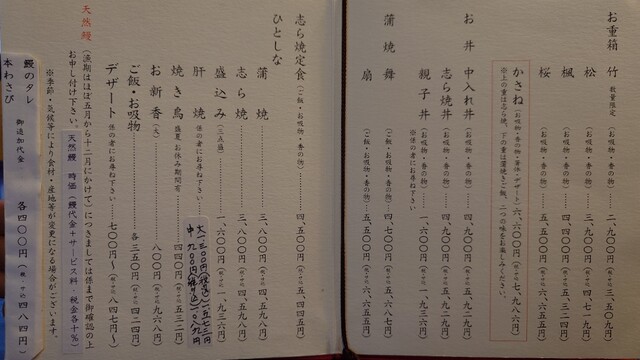 お重箱 竹 数量限定 （お吸物・香の物）…… 二、九〇〇円
松 （お吸物・香の物）…… 三、九〇〇円
楓 （お吸物・香の物）…… 四、四〇〇円
桜 （お吸物・香の物）…… 五、五〇〇円
かさね（お吸物・香の物・箸休・デザート）六、六〇〇円（税・サ込 七、九八六円）
※上の重は志ら焼、下の重は蒲焼きご飯、二つの味をお楽しみください。
お丼 中入れ丼 （お吸物・香の物）…… 四、九〇〇円
志ら焼丼 （お吸物・香の物）…… 四、四〇〇円
親子丼 （お吸物・香の物）…… 一、六〇〇円（税・サ込 一、九三六円）
※係の者にお尋ね下さい
蒲焼 舞 （ご飯・お吸物・香の物）…… 四、七〇〇円
扇 （ご飯・お吸物・香の物）…… 五、五〇〇円（税・サ込 六、六五五円）
志ら焼定食 （ご飯・お吸物・香の物）…… 四、五〇〇円（税・サ込 五、四四五円）
ひとしな
蒲焼 …… 三、八〇〇円（税・サ込 四、五九八円）
志ら焼 …… 三、八〇〇円（税・サ込 四、五九八円）
盛込み （三点盛）…… 一、六〇〇円（税・サ込 一、九三六円）
肝焼 係の者にお尋ね下さい……
大 一三〇〇円（税込）一五七三円
中 九〇〇円（税込）一〇八九円
焼き鳥 盛夏 お休み期間有 …… 四四〇円（税・サ込 五三二円）
お新香 （大）…… 八〇〇円（税・サ込 九六八円）
ご飯・お吸物 …… 各 三五〇円（税・サ込 四二四円）
デザート 係の者にお尋ね下さい …… 七〇〇円〜（税・サ込 八四七円）〜
天然鰻 （漁期はほぼ五月から十二月にかけて）につきましては係まで御確認の上
お申し付け下さい。 天然鰻 時価（鰻代金＋サービス料・税金各十％）
※季節・気候等により食材・産地等が変更になる場合がございます。
鰻のタレ
本わさび 御追加代金 各四〇〇円（税・サ込 四八四円）